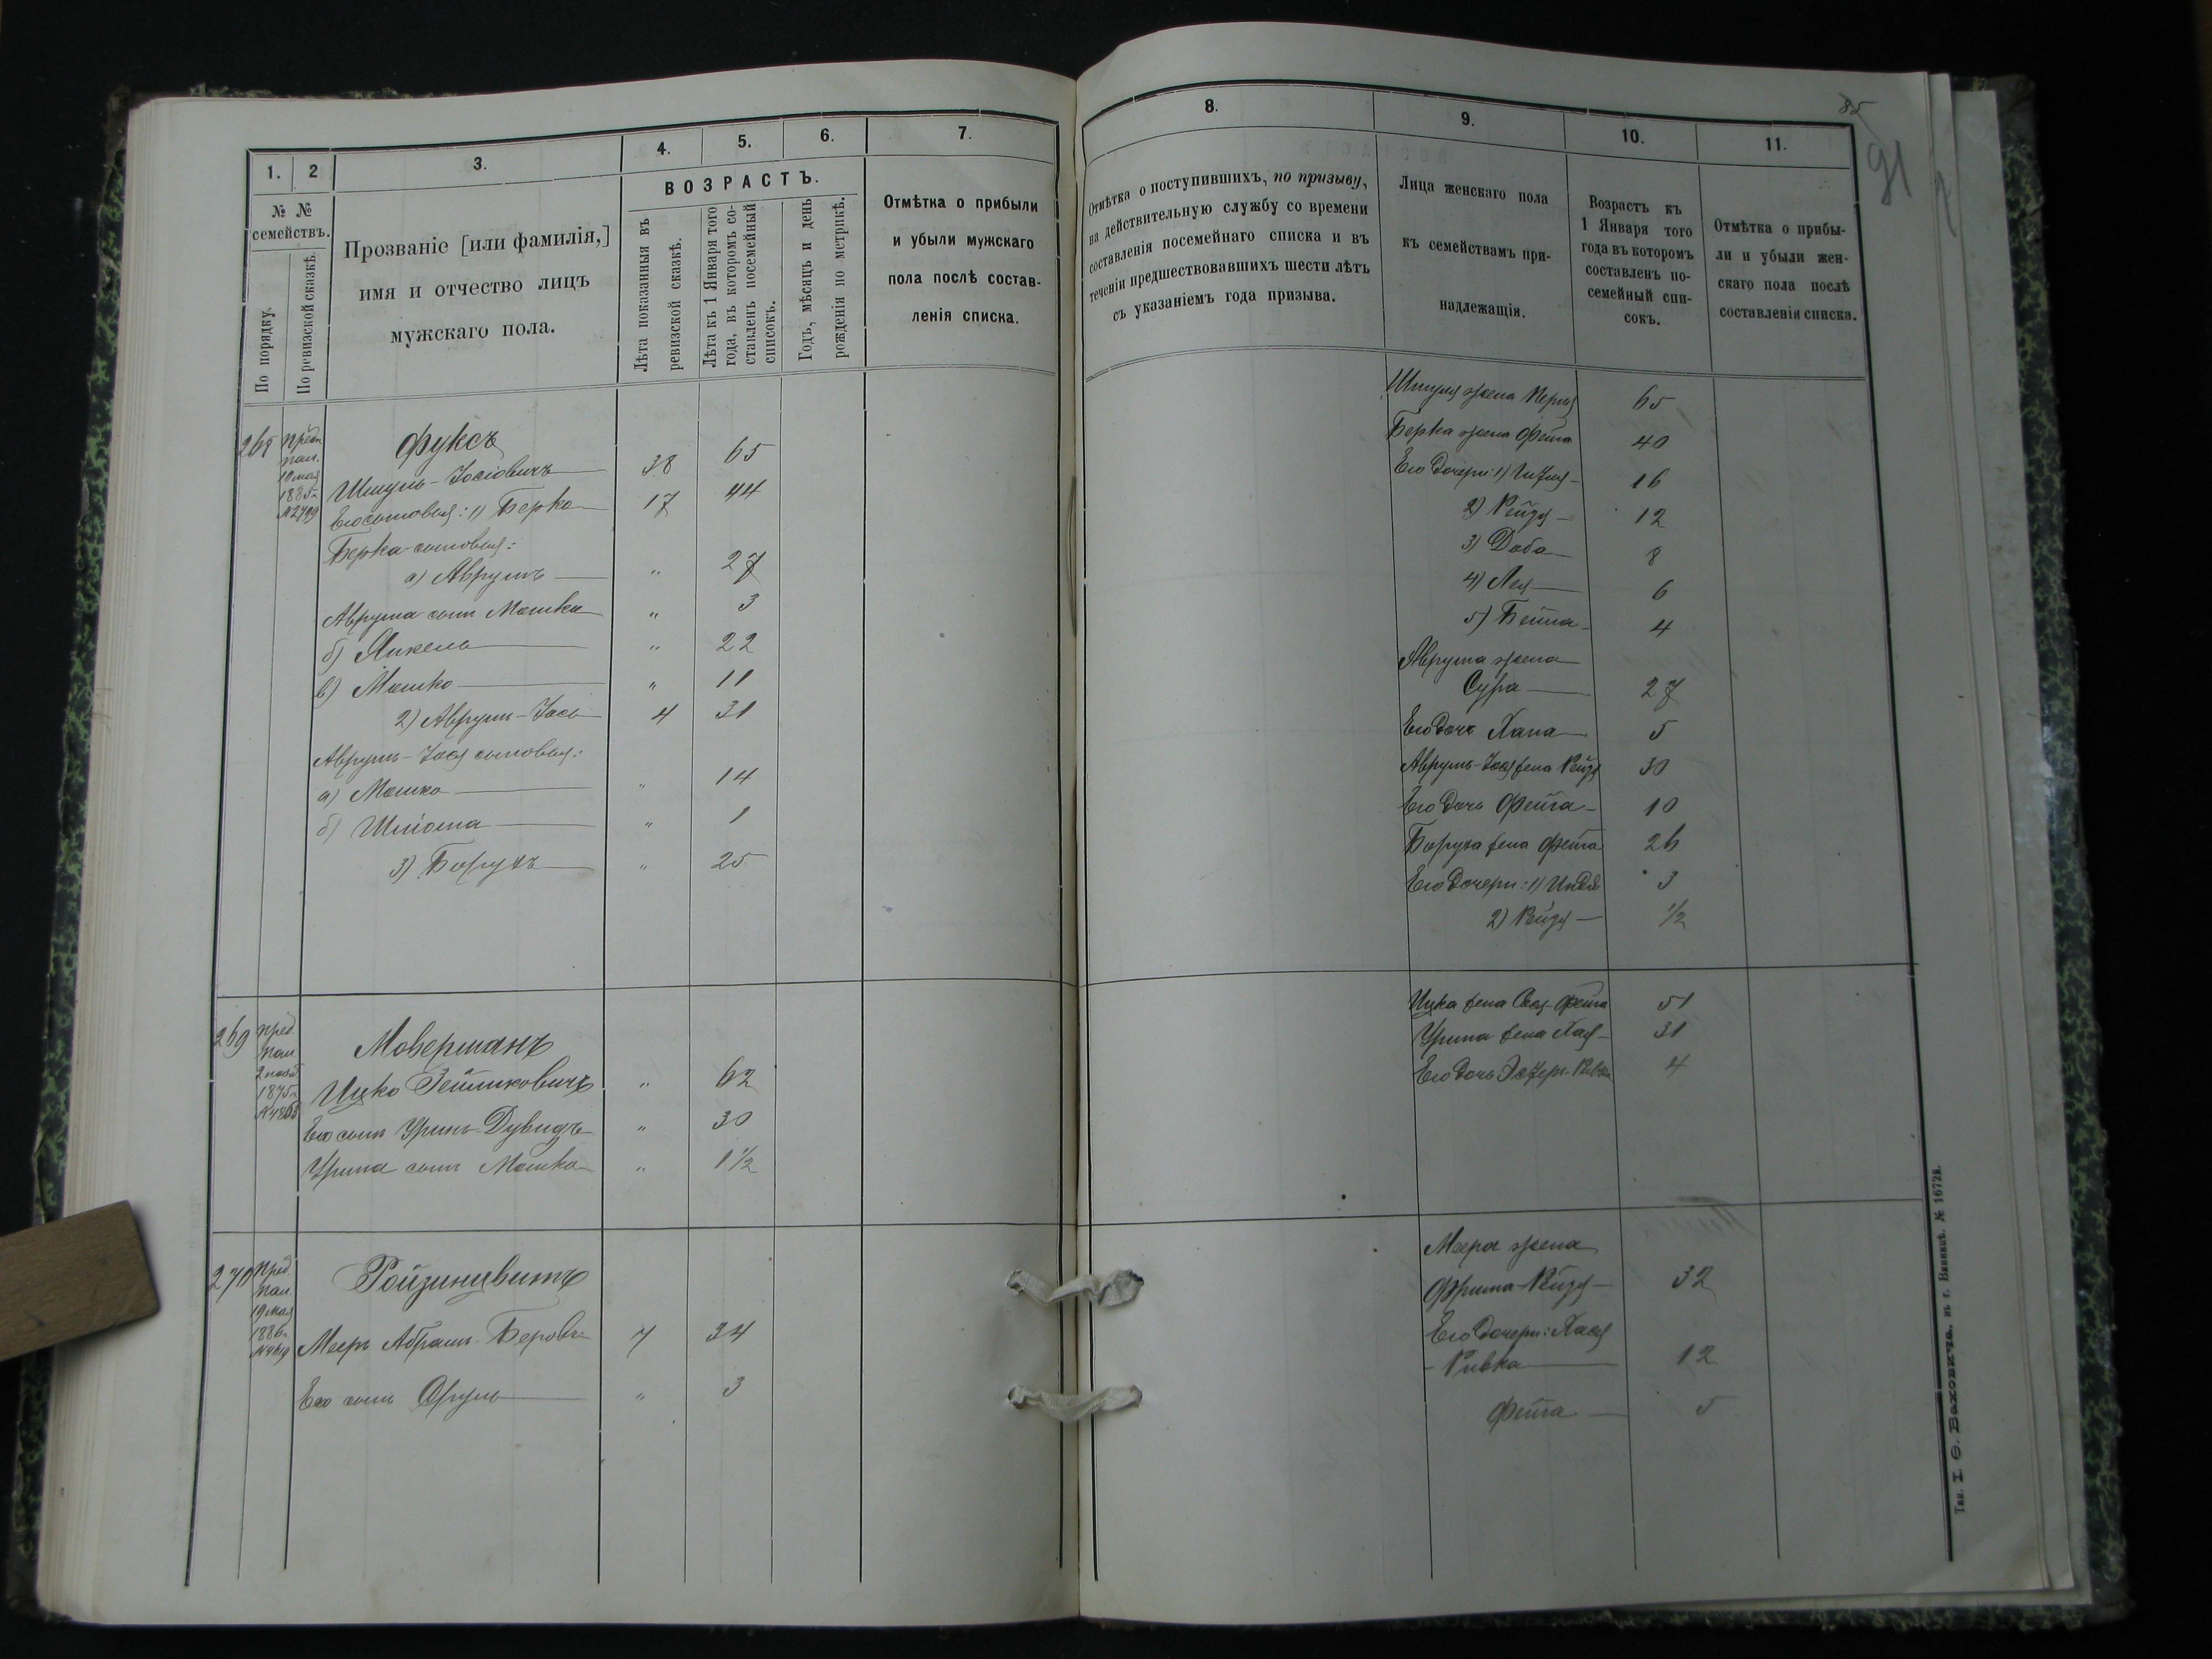 1.
2
3.
4.
5.
6.
7.
№ №
семействъ.
По порядку.
По ревизской сказкѣ.
Прозваніе [или фамилія,]
имя и отчество лицъ
мужскаго пола.
ВОЗРАСТЪ.
Лѣта показанныя въ
ревизской сказкѣ.
Лѣта къ 1 Января того
года, въ которомъ со-
ставленъ посемейный
списокъ.
Годъ, мѣсяцъ и день
рожденія по метрикѣ.
Отмѣтка о прибыли
и убыли мужскаго
пола послѣ состав-
ленія списка.
Фуксъ
Шмуль-Іосіовичъ 38 65
Его сыновья: 1) Берко 17 44
Берка сыновья:
а) Аврумъ " 27
Аврума сынъ Мошко " 3
б) Янкель " 22
в) Мошко " 11
2) Аврумъ-Іось 4 31
Аврумъ-Іося сыновья:
а) Мошко " 14
б) Шлёма " 1
3) Борухъ " 25
269
Пред.
пал.
1875 г.
Моверманъ
Ицко Зейликовичъ " 62
Его сынъ Уринъ-Дувидъ " 30
Урина сынъ Мошко " 1½
270
Пред.
пал.
19 мая
1886 г.
Ройзинцвитъ
Мееръ Абрамъ Беровъ 7 34
Его сынъ Сруль " 3
8.
9.
10.
11.
85
91
Отмѣтка о поступившихъ, по призыву,
на дѣйствительную службу со времени
составленія посемейнаго списка и въ
теченіи предшествовавшихъ шести лѣтъ
съ указаніемъ года призыва.
Лица женскаго пола
къ семействамъ при-
надлежащія.
Возрастъ къ
1 Января того
года въ которомъ
составленъ по-
семейный спи-
сокъ.
Отмѣтка о прибы-
ли и убыли жен-
скаго пола послѣ
составленія списка.
Шмуля жена Перля 65
Берка жена Фейга 40
Его дочери: 1) 16
2) Рейзя 12
3) Доба 8
4) Лея 6
5) Бейла 4
Аврума жена
Сура 27
Его дочь Хана 5
Аврумъ-Іося жена Рейзя 30
Его дочь Фейга 10
Боруха жена Фейга 26
Его дочери: 1) 3
2) Рейзя ½
Ицка жена Фейга 51
Урина жена Хая 31
Его дочь Эстеръ-Ривка 4
Меера жена
Фрима-Рейзя 32
Его дочери: Хася
-Ривка 12
Фейга 5
Тип. І. Ѳ. Баховича, въ г. Винницѣ. № 1672в.